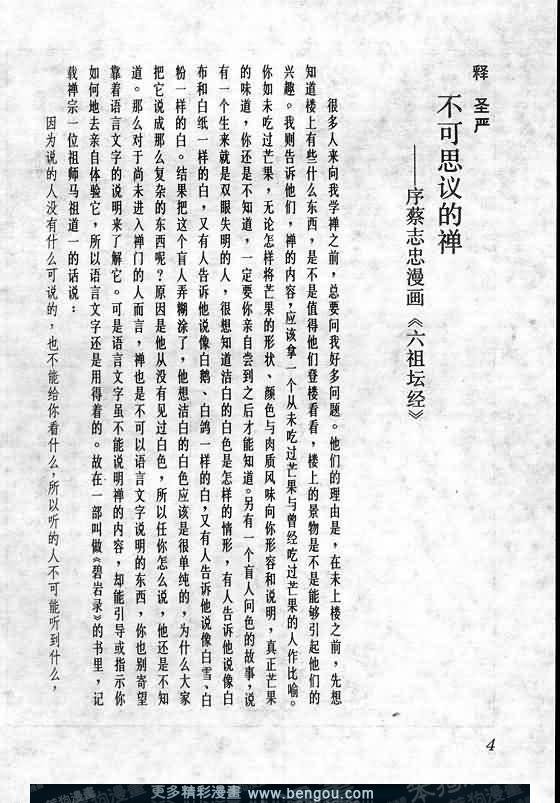 释 圣严
不可思议的禅
——序蔡志忠漫画《六祖坛经》
很多人来向我学禅之前，总要问我好多问题。他们的理由是，在未上楼之前，先想
知道楼上有些什么东西，是不是值得他们登楼看看，楼上的景物是不是能够引起他们的
兴趣。我则告诉他们，禅的内容，应该拿一个从未吃过芒果与曾经吃过芒果的人作比喻。
你如未吃过芒果，无论怎样将芒果的形状、颜色与肉质风味向你形容和说明，真正芒果
的味道，你还是不知道，一定要你亲自尝到之后才能知道。另有一个盲人问色的故事，说
有一个生来就是双眼失明的人，很想知道洁白的白色是怎样的情形，有人告诉他说像白
布和白纸一样的白，又有人告诉他说像白鹅、白鸽一样的白，又有人告诉他说像白雪、白
粉一样的白。结果把这个盲人弄糊涂了，他想洁白的白色应该是很单纯的，为什么大家
把它说成那么复杂的东西呢？原因是他从没有见过白色，所以任你怎么说，他还是不知
道。那么对于尚未进入禅门的人而言，禅也是不可以语言文字说明的东西，你也别寄望
靠着语言文字的说明来了解它。可是语言文字虽不能说明禅的内容，却能引导或指示你
如何地去亲自体验它，所以语言文字还是用得着的。故在一部叫做《碧岩录》的书里，记
载禅宗一位祖师马祖道一的话说：
因为说的人没有什么可说的，也不能给你看什么，所以听的人不可能听到什么，
4
更多精彩漫畫 www.bengou.com